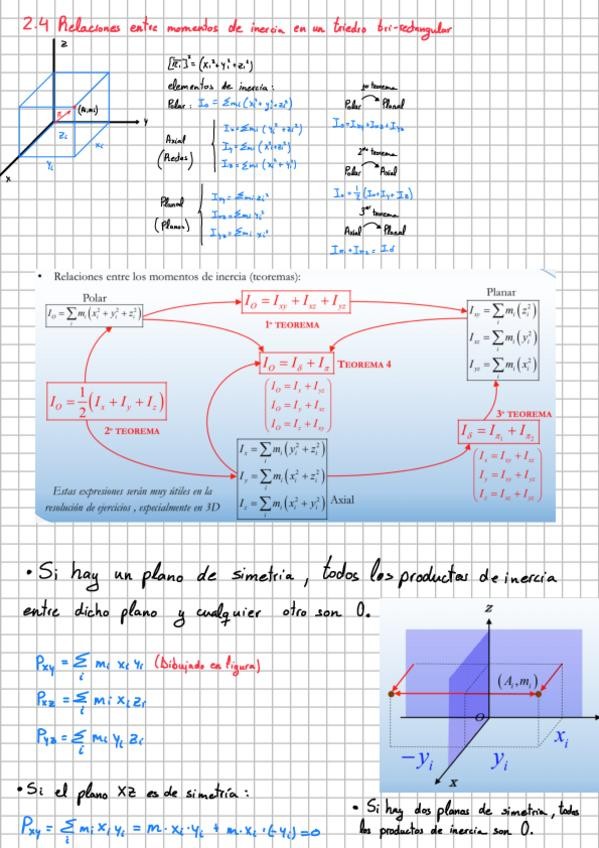 2.4 Relaciones entre momentos de inercia en un triedro tri-rectangular
z
(Ai,mi)
y
zi
xi
yi
x
[ri]² = (xi²+yi²+zi²)
elementos de inercia:
Polar: Io = Σmi (xi²+yi²+zi²)
Axial
(Rectas)
Ix = Σmi (yi²+zi²)
Iy = Σmi (xi²+zi²)
Iz = Σmi (xi²+yi²)
Planal
(Planos)
Ixy = Σmi zi²
Ixz = Σmi yi²
Iyz = Σmi xi²
1er teorema
Polar Planal
Io = Ixy+Ixz+Iyz
2do teorema
Polar Axial
Io = 1/2 (Ix+Iy+Iz)
3er teorema
Axial Planal
Iπ1 + Iπ2 = Id
• Relaciones entre los momentos de inercia (teoremas):
Polar
I_O = Σ_i m_i(x_i² + y_i² + z_i²)
I_O = I_xy + I_xz + I_yz
1º TEOREMA
Planar
I_xy = Σ_i m_i(z_i²)
I_xz = Σ_i m_i(y_i²)
I_yz = Σ_i m_i(x_i²)
I_O = I_δ + I_π TEOREMA 4
I_O = I_x + I_yz
I_O = I_y + I_xz
I_O = I_z + I_xy
I_O = 1/2 (I_x + I_y + I_z)
2º TEOREMA
3º TEOREMA
I_δ = I_π1 + I_π2
I_x = I_xy + I_xz
I_y = I_xy + I_yz
I_z = I_xz + I_yz
I_x = Σ_i m_i(y_i² + z_i²)
I_y = Σ_i m_i(x_i² + z_i²)
I_z = Σ_i m_i(x_i² + y_i²) Axial
Estas expresiones serán muy útiles en la
resolución de ejercicios , especialmente en 3D
• Si hay un plano de simetria, todos los productos de inercia
entre dicho plano y cualquier otro son 0.
Pxy = Σ_i mi xi yi (Dibujado en figura)
Pxz = Σ_i mi xi zi
Pyz = Σ_i mi yi zi
z
(A_i, m_i)
O
x_i
-y_i y_i
x
• Si el plano XZ es de simetría:
Pxy = Σ_i mi xi yi = m·xi·yi + m·xi·(-yi) = 0
• Si hay dos planos de simetria, todos
los productos de inercia son 0.